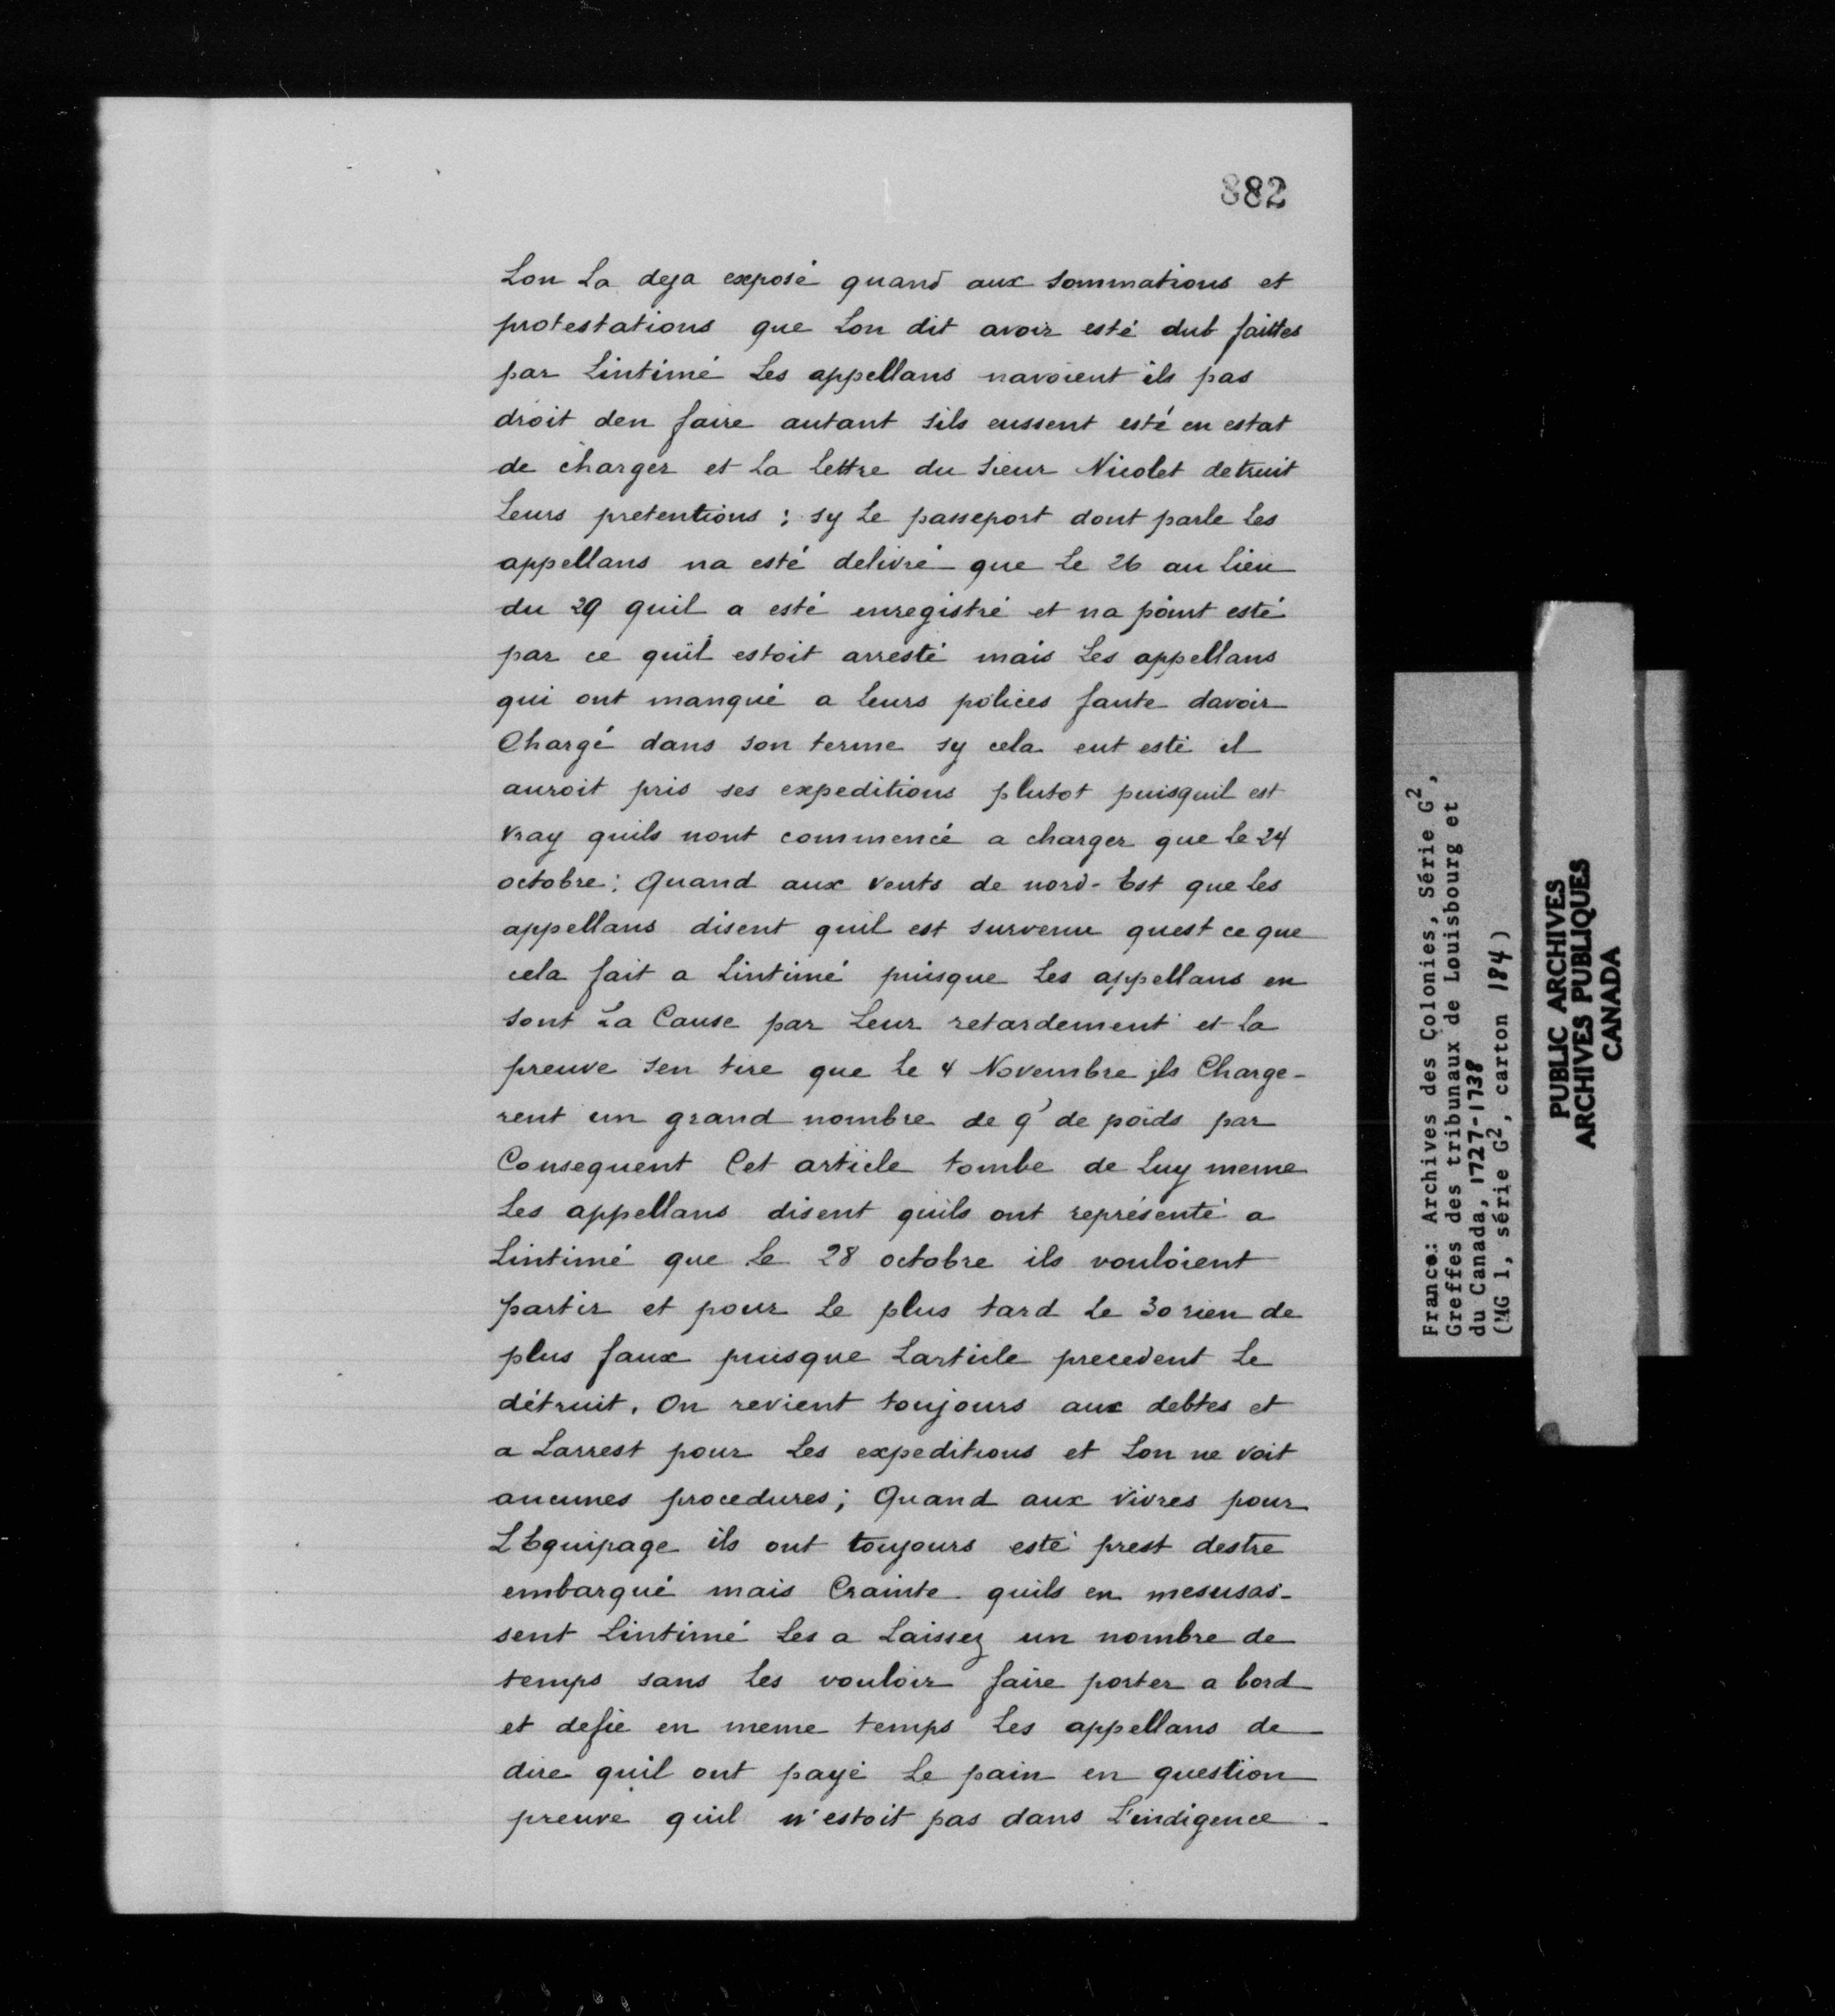 882
Lon La deja exposé quand aux sommations et
protestations que Lon dit avoir esté dub faittes
par Lintimé Les appellans navoient ils pas
droit den faire autant sils eussent esté en estat
de charger et La Lettre du Sieur Nicolet detruit
Leurs pretentions ; sy Le passeport dont parle Les
appellans na esté delivré que Le 26 au Lieu
du 29 quil a esté enregistré et na point esté
par ce quil estoit arresté mais Les appellans
qui ont manqué a Leurs polices faute davoir
Chargé dans son terme sy cela eut esté il
auroit pris ses expeditions plutot puisquil est
vray quils nont commencé a charger que Le 24
octobre : Quand aux vents de nord-Est que Les
appellans disent quil est survenu quest ce que
cela fait a Lintimé puisque Les appellans en
sont La Cause par Leur retardement et La
preuve sen tire que Le 4 Novembre jls Charge-
rent un grand nombre de q' de poids par
Consequent Cet article tombe de Luy meme
Les appellans disent quils ont représenté a
Lintimé que Le 28 octobre ils vouloient
partir et pour Le plus tard Le 30 rien de
plus faux puisque Larticle precedent Le
détruit. On revient toujours aux debtes et
a Larrest pour Les expeditions et Lon ne voit
aucunes procedures ; Quand aux vivres pour
LEquipage ils ont toujours esté prest destre
embarqué mais Crainte quils en mesusas-
sent Lintimé Les a Laissez un nombre de
temps sans Les vouloir faire porter a bord
et defie en meme temps Les appellans de
dire quil ont payé Le pain en question
preuve quil n'estoit pas dans L'indigence .
France: Archives des Colonies, Série G2,
Greffes des tribunaux de Louisbourg et
du Canada, 1727-1738
(MG 1, série G2, carton 184)
PUBLIC ARCHIVES
ARCHIVES PUBLIQUES
CANADA